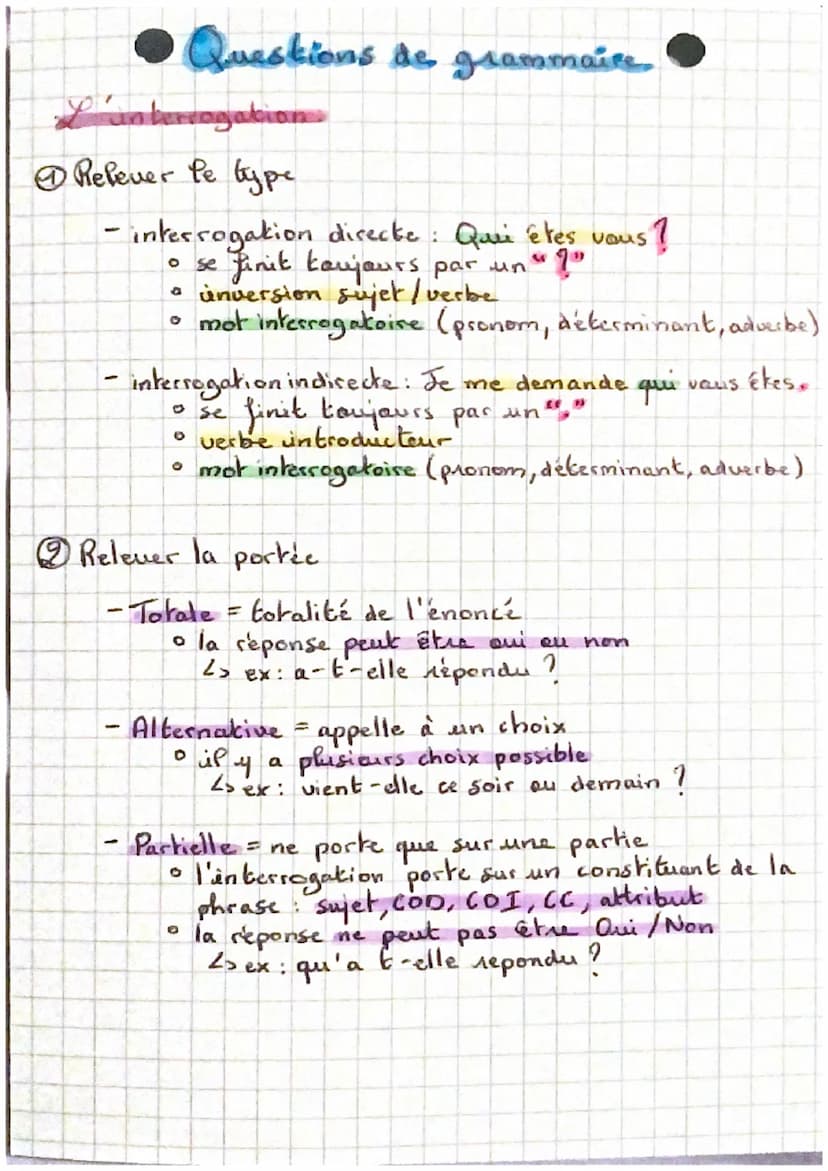 Questions de grammaire
L'interrogation
① Relever le type
- interrogation directe : Qui êtes vous ?
° se finit toujours par un "?"
° inversion sujet/verbe
° mot interrogatoire (pronom, déterminant, adverbe)
- interrogation indirecte : Je me demande qui vous êtes.
° se finit toujours par un "."
° verbe introducteur
° mot interrogatoire (pronom, déterminant, adverbe)
② Relever la portée
- Totale = totalité de l'énoncé
° la réponse peut être oui ou non
↳ ex : a-t-elle répondu ?
- Alternative = appelle à un choix
° il y a plusieurs choix possible
↳ ex : vient-elle ce soir ou demain ?
- Partielle = ne porte que sur une partie
° l'interrogation porte sur un constituant de la
phrase : sujet, COD, COI, CC, attribut
° la réponse ne peut pas être Oui/Non
↳ ex : qu'a t-elle repondu ?